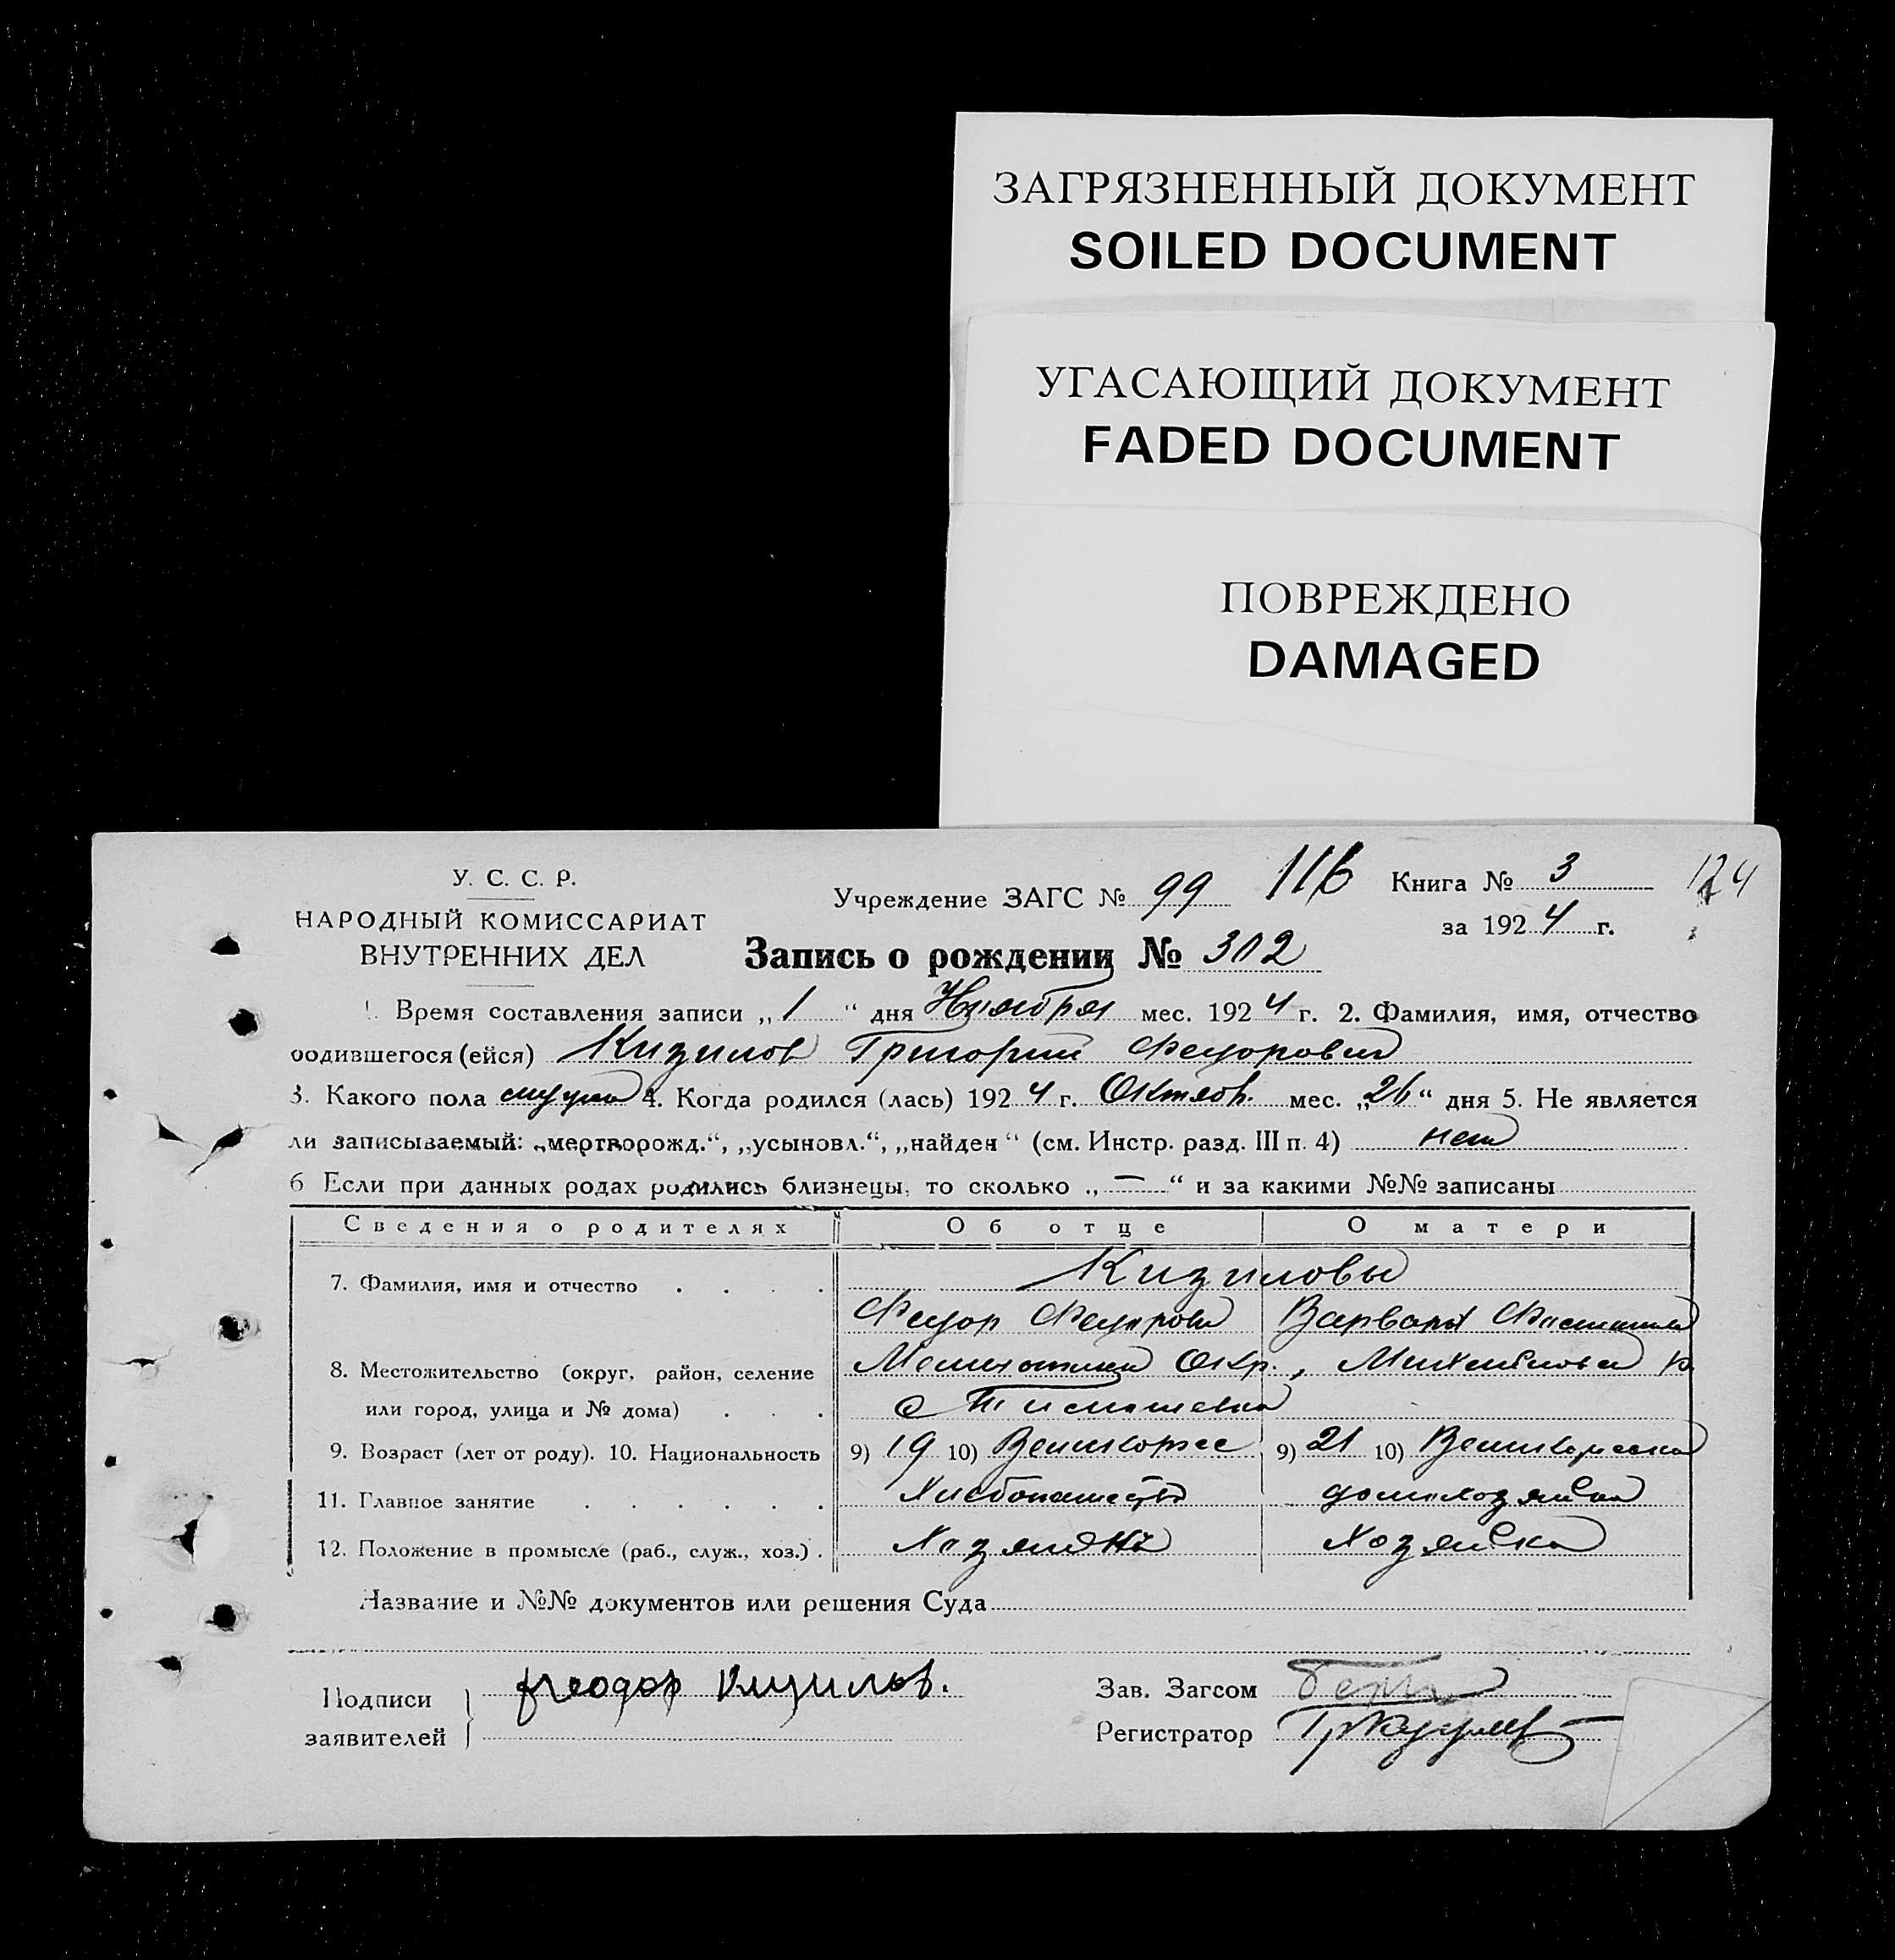 ЗАГРЯЗНЕННЫЙ ДОКУМЕНТ
SOILED DOCUMENT
УГАСАЮЩИЙ ДОКУМЕНТ
FADED DOCUMENT
ПОВРЕЖДЕНО
DAMAGED
У. С. С. Р.
НАРОДНЫЙ КОМИССАРИАТ
ВНУТРЕННИХ ДЕЛ
Учреждение ЗАГС № 99 116 Книга № 3 124
за 1924 г.
Запись о рождении № 302
1. Время составления записи „1“ дня Ноября мес. 1924 г. 2. Фамилия, имя, отчество
родившегося (ейся) Кизилов Григорий Федорович
3. Какого пола мужск 4. Когда родился (лась) 1924 г. Октяб. мес. „26“ дня 5. Не является
ли записываемый: „мертворожд.“, „усыновл.“, „найден“ (см. Инстр. разд. III п. 4) нет
6 Если при данных родах родились близнецы, то сколько „—“ и за какими №№ записаны
Сведения о родителях Об отце О матери
7. Фамилия, имя и отчество Кизиловы
Федор Федоров Варвара
8. Местожительство (округ, район, селение Мелитопол Окр., Михайловск р.
или город, улица и № дома) с Тимошевка
9. Возраст (лет от роду). 10. Национальность 9) 19 10) Великорос 9) 21 10) Великоросска
11. Главное занятие Хлебопашество домохозяйка
12. Положение в промысле (раб., служ., хоз.) Хозяин Хозяйка
Название и №№ документов или решения Суда
Подписи заявителей Феодор Кизилов.
Зав. Загсом
Регистратор